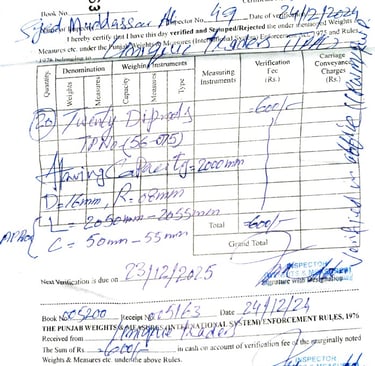 Book No.
Syed Muddassar Ali
Inspector No. 49 Date of verification 24/12/2024
I hereby certify that I have this day verified and Stamped/Rejected the under mentioned Weights
Measures etc. under the Punjab Weights & Measures (International System) Enforcement Act, 1975 and Rules,
1976 belonging to Unique Traders
Quantity. Denomination Weighing Instruments Measuring Instruments Verification Fee (Rs.) Carriage Conveyance Charges (Rs.)
Weights Measures Capacity Measures Type
(20) Twenty Diprods 600/-
TPNo (56-075)
Having Capacity = 2000mm
D=16mm, R=02mm
L = 2050mm-2055mm Total 600/-
C = 50mm-55mm Grand Total
Verified in office
Next Verification is due on 23/12/2025
INSPECTOR
WEIGHTS & MEASURES
Signature with Designation
Book No. 005200 Receipt 005163 Date 24/12/24
THE PUNJAB WEIGHTS & MEASURES (INTERNATIONAL SYSTEM) ENFORCEMENT RULES, 1976
Received from Unique Traders
The Sum of Rs. 600/- in cash on account of verification fee of the marginally noted
Weights & Measures etc. under the above Rules.
INSPECTOR